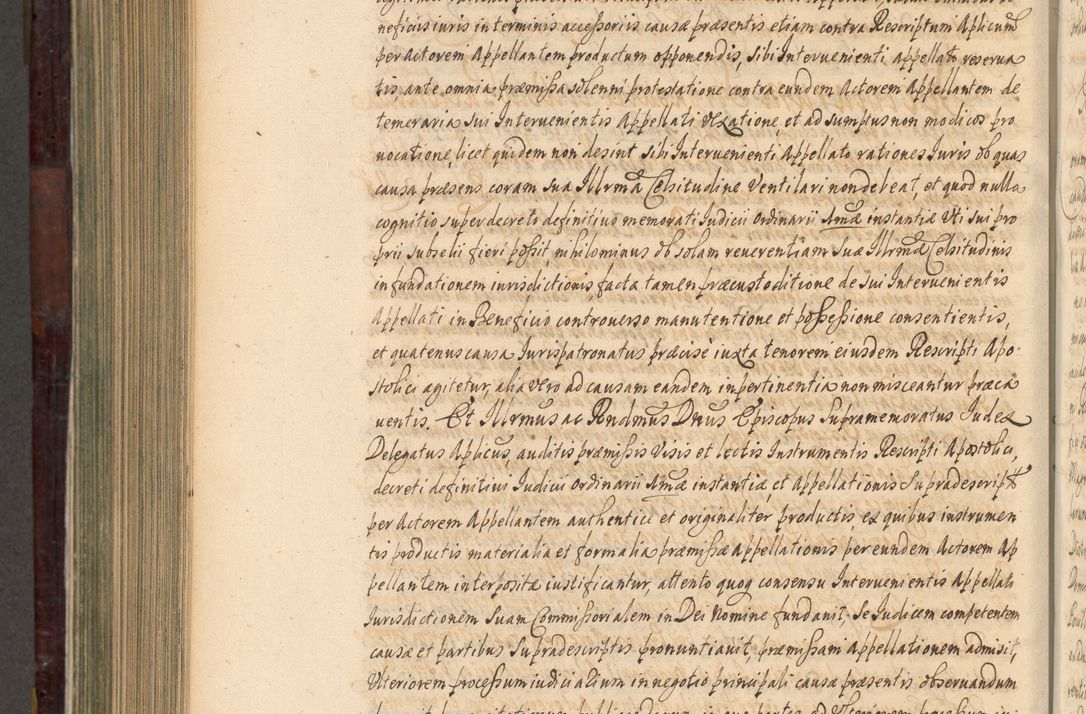 neficijs iuris in terminis accessorijs causæ præsentis etiam contra Rescriptum Aplicum
per Actorem Appellantem productum opponendis, sibi Interuenienti appellato reserua
tis, ante omnia præmissa solenni protestatione contra eundem Actorem Appellantem de
temeraria sui Interuenientis Appellati vexatione, et ad sumptus non modicos pro
uocatione, licet quidem non desint sibi Interuenienti Appellato rationes Iuris ob quas
causa præsens coram sua Illrmâ Celsitudine Ventilari non debeat, et quod nulla
cognitio super decreto definitiuo memorati Iudicij Ordinarij Amæ instantiæ Vti sui pro
prij subselij fieri possit, nihilominus ob solam reuerentiam Suæ Illrmæ Celsitudinis
in fundationem iurisdictionis, facta tamen præcustoditione de sui Interuenientis
Appellati in Beneficio controuerso manutentione et possessione consentientis,
et quatenus causa Iurispatronatus præcisè iuxta tenorem eiusdem Rescripti Apo-
stolici agitetur, alia vero ad causam eandem inpertinentia non misceantur præca
uentis. Et Illrmus ac Rndmus Dnus Episcopus Supramemoratus Iudex
Delegatus Aplicus, auditis præmissis visis et lectis Instrumentis Rescripti Apostolici,
decreti definitiui Iudicij Ordinarij Amæ instantiæ, et Appellationis Supradescript
per Actorem Appellantem authenticè et originaliter productis ex quibus instrumen
tis productis materialia et formalia præmissæ appellationis per eundem Actorem Ap
pellantem interpositæ iustificantur, attento quoq consensu Interuenientis Appellati
Iurisdictionem Suam Commissorialem in Dei Nomine fundauit, Se Iudicem competentem
causæ et partibus Supradescriptis pronuntiauit, præmissam Appellationem admisit,
Vlteriorem processum iudicialium in negotio principali causæ præsentis obseruandum